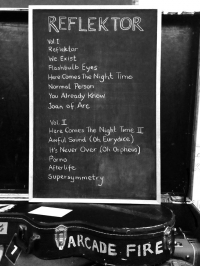 REFLEKTOR
Vol. I
Reflektor
We Exist
Flashbulb Eyes
Here Comes The Night Time
Normal Person
You Already Know
Joan of Arc
Vol. II
Here Comes The Night Time II
Awful Sound (Oh Eurydice)
It's Never Over (Oh Orpheus)
Porno
Afterlife
Supersymmetry
ARCADE FIRE